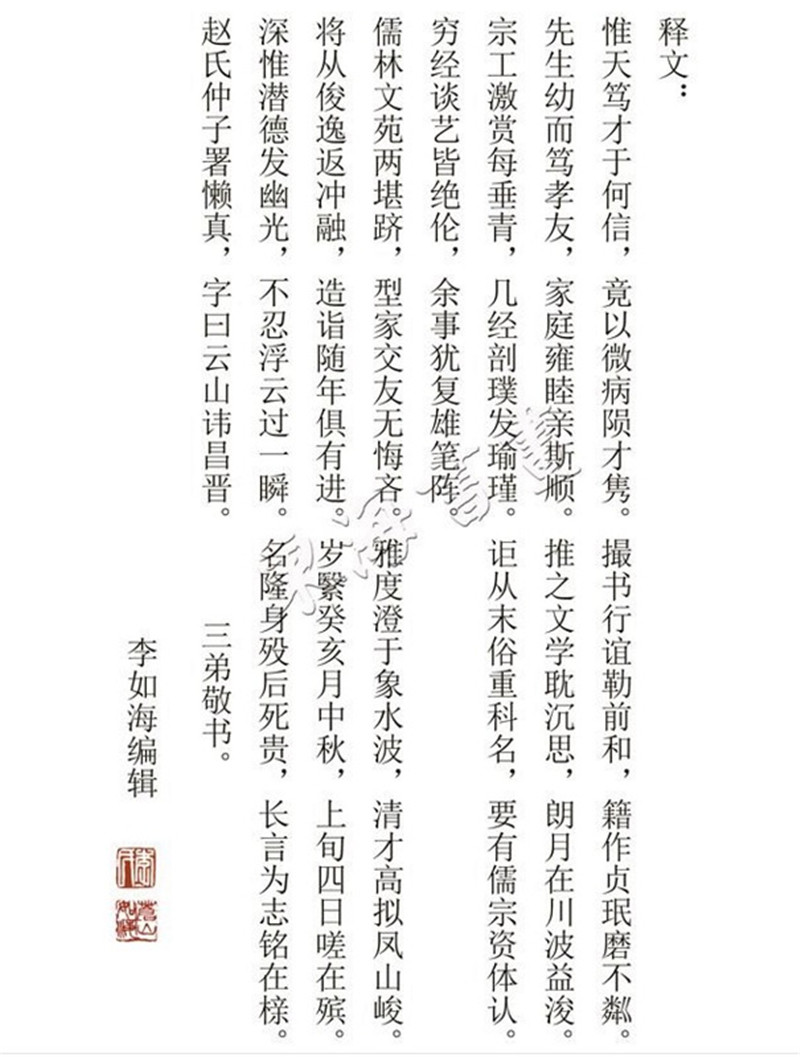 释文：
惟天笃才于何信，竟以微病陨才隽。撮书行谊勒前和，籍作贞珉磨不粼。
先生幼而笃孝友，家庭雍睦亲斯顺。推之文学耽沉思，朗月在川波益浚。
宗工激赏每垂青，几经剖璞发瑜瑾。讵从末俗重科名，要有儒宗资体认。
穷经谈艺皆绝伦，余事犹复雄笔阵。
儒林文苑两堪跻，型家交友无悔吝。雅度澄于象水波，清才高拟凤山峻。
将从俊逸返冲融，造诣随年俱有进。岁繄癸亥月中秋，上旬四日嗟在殡。
深惟潜德发幽光，不忍浮云过一瞬。名隆身殁后死贵，长言为志铭在榇。
赵氏仲子署懒真，字曰云山讳昌晋。三弟敬书。
李如海编辑